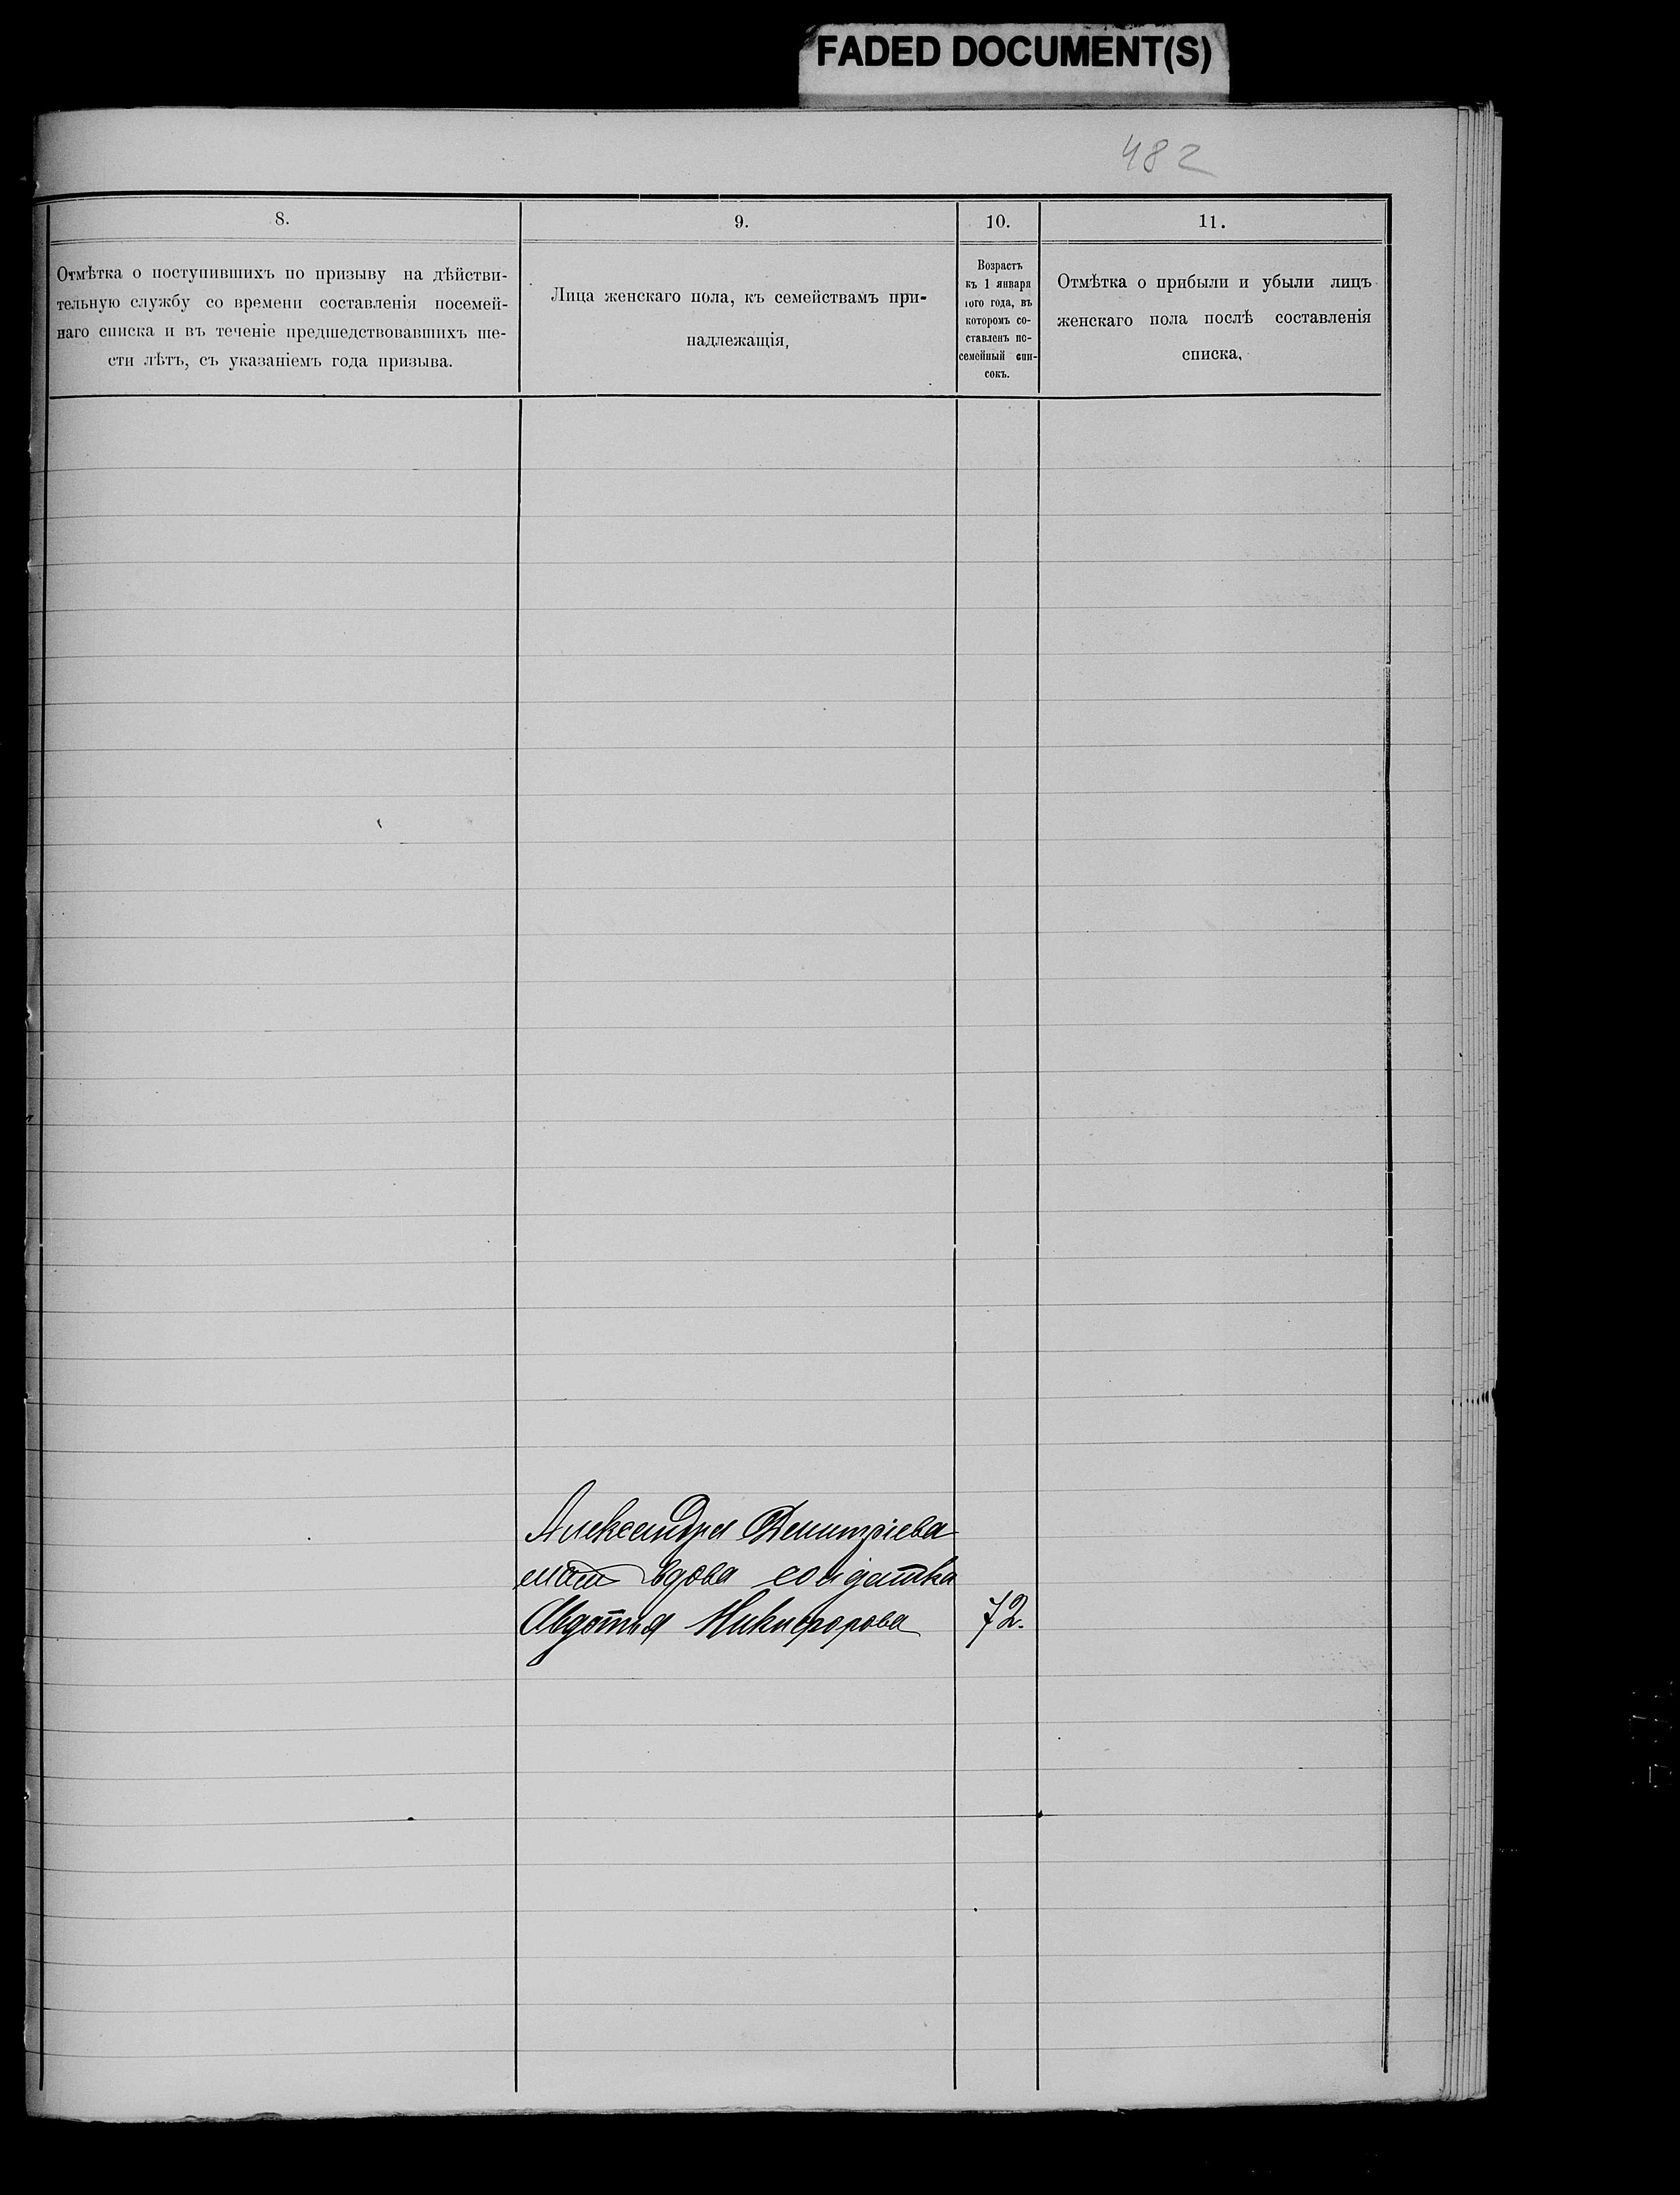 FADED DOCUMENT(S)
482
8.
9.
10.
11.
Отмѣтка о поступившихъ по призыву на дѣйстви-
тельную службу со времени составленія посемей-
наго списка и въ теченіе предшедствовавшихъ ше-
сти лѣтъ, съ указаніемъ года призыва.
Лица женскаго пола, къ семействамъ при-
надлежащія,
Возрастъ
къ 1 января
того года, въ
которомъ со-
ставленъ по-
семейный спи-
сокъ.
Отмѣтка о прибыли и убыли лицъ
женскаго пола послѣ составленія
списка,
Александра Дмитріева
мать вдова солдатка
Авдотья Никифорова 72.